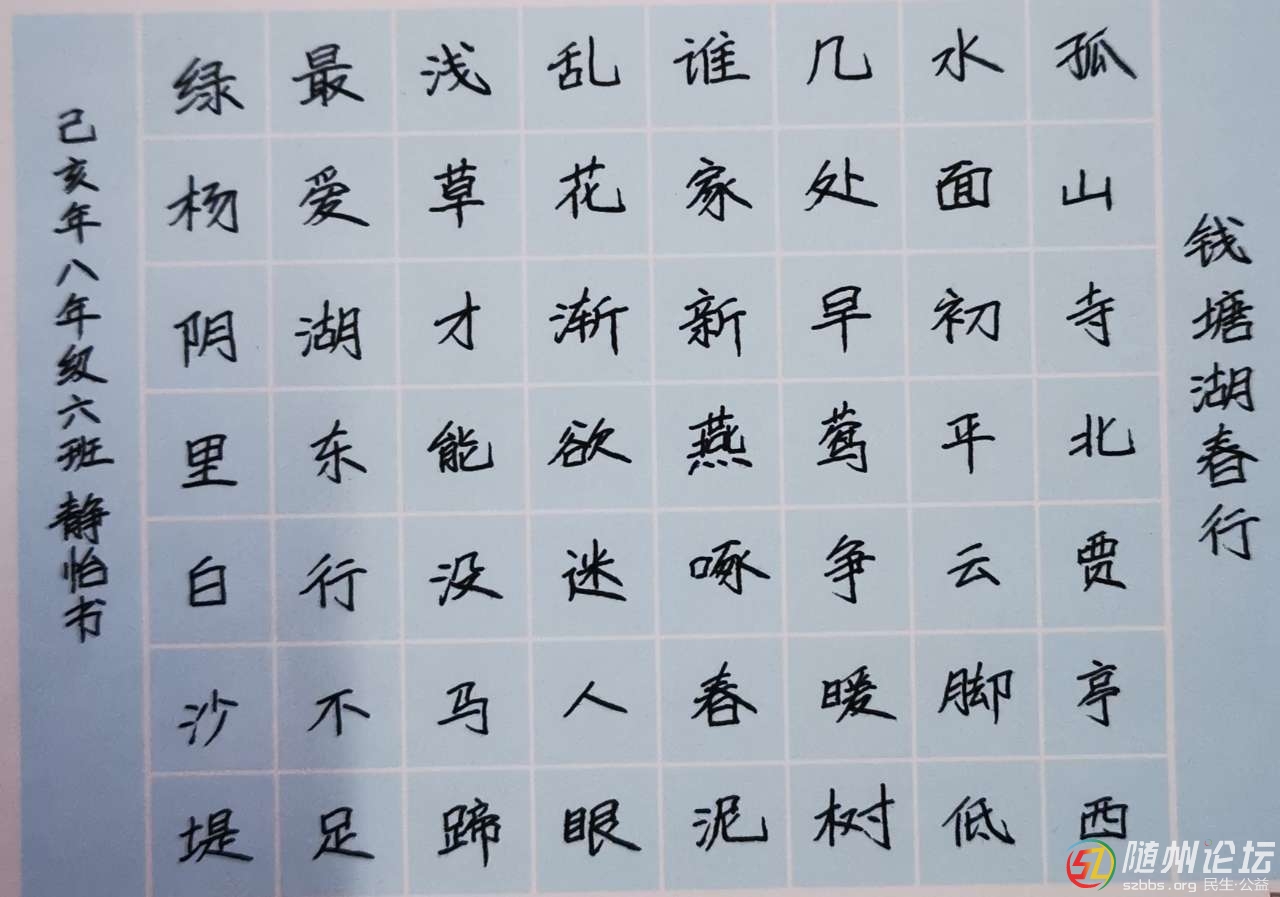 钱塘湖春行
孤山寺北贾亭西
水面初平云脚低
几处早莺争暖树
谁家新燕啄春泥
乱花渐欲迷人眼
浅草才能没马蹄
最爱湖东行不足
绿杨阴里白沙堤
己亥年八年级六班静怡书
随州论坛
szbbs.org 民生·公益